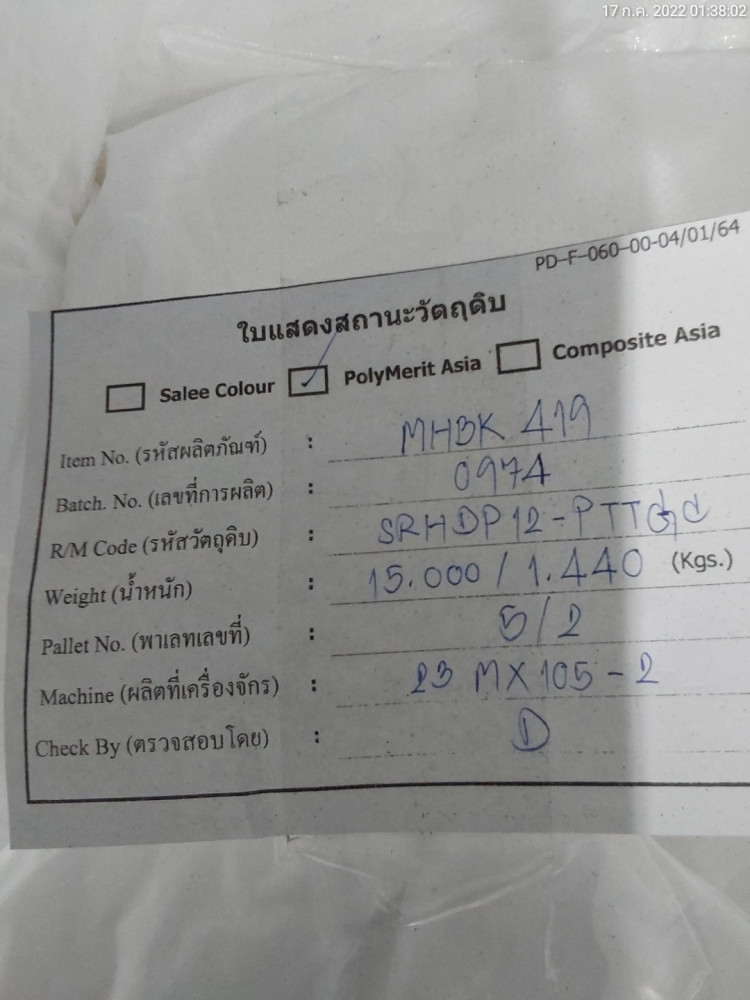 17 ก.ค. 2022 01:38:02
PD-F-060-00-04/01/64
ใบแสดงสถานะวัตถุดิบ
Salee Colour PolyMerit Asia Composite Asia
Item No. (รหัสผลิตภัณฑ์) : MHBK 419
Batch. No. (เลขที่การผลิต) : 0974
R/M Code (รหัสวัตถุดิบ) : SRHDP12-PTTGC
Weight (น้ำหนัก) : 15.000 / 1.440 (Kgs.)
Pallet No. (พาเลทเลขที่) : 5/2
Machine (ผลิตที่เครื่องจักร) : 23 MX105-2
Check By (ตรวจสอบโดย) : D